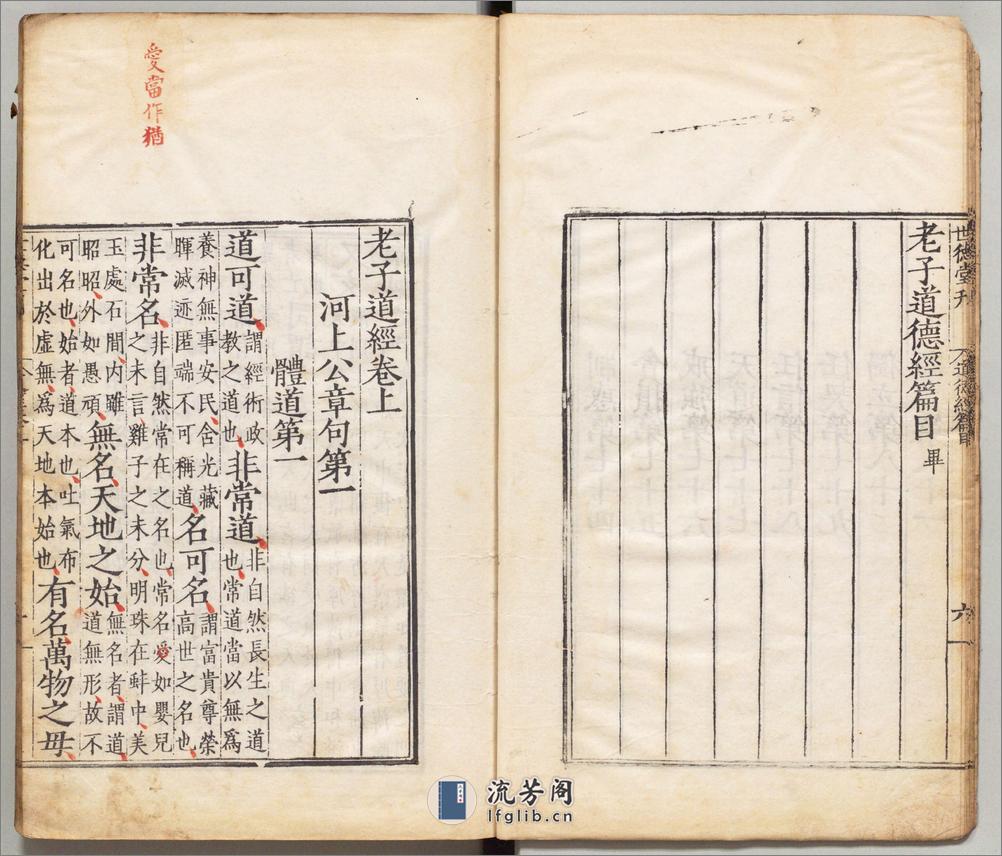 世德堂刋
道德經篇目
六
老子道德經篇目 畢
愛當作猶
老子道經卷上
河上公章句第一
體道第一
道可道謂經術政教之道也非常道非自然長生之道也常道當以無爲
養神無事安民含光藏暉滅迹匿端不可稱道名可名謂富貴尊榮高世之名也
非常名非自然常在之名也常名愛如嬰兒之未言雞子之未分明珠在蚌中美
玉處石間内雖昭昭外如愚頑無名天地之始無名者謂道道無形故不
可名也始者道本也吐氣布化出於虛無爲天地本始也有名萬物之母
流芳阁
lfglib.cn